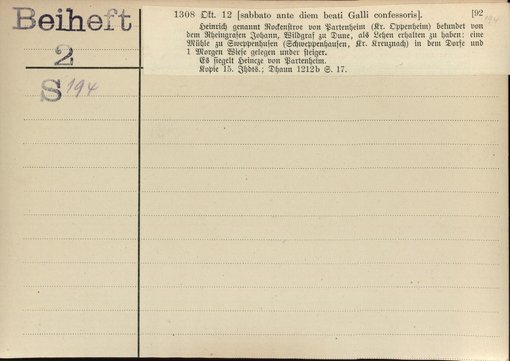 Beiheft
2
S 194
1308 Okt. 12 [sabbato ante diem beati Galli confessoris]. [92
194
Heinrich genannt Rockenstroe von Partenheim (Kr. Oppenheim) bekundet von
dem Rheingrafen Johann, Wildgraf zu Dune, als Lehen erhalten zu haben: eine
Mühle zu Sweppenhusen (Schweppenhausen, Kr. Kreuznach) in dem Dorfe und
1 Morgen Wiese gelegen under steiger.
Es siegelt Heincze von Partenheim.
Kopie 15. Jhdts.; Dhaun 1212b S. 17.